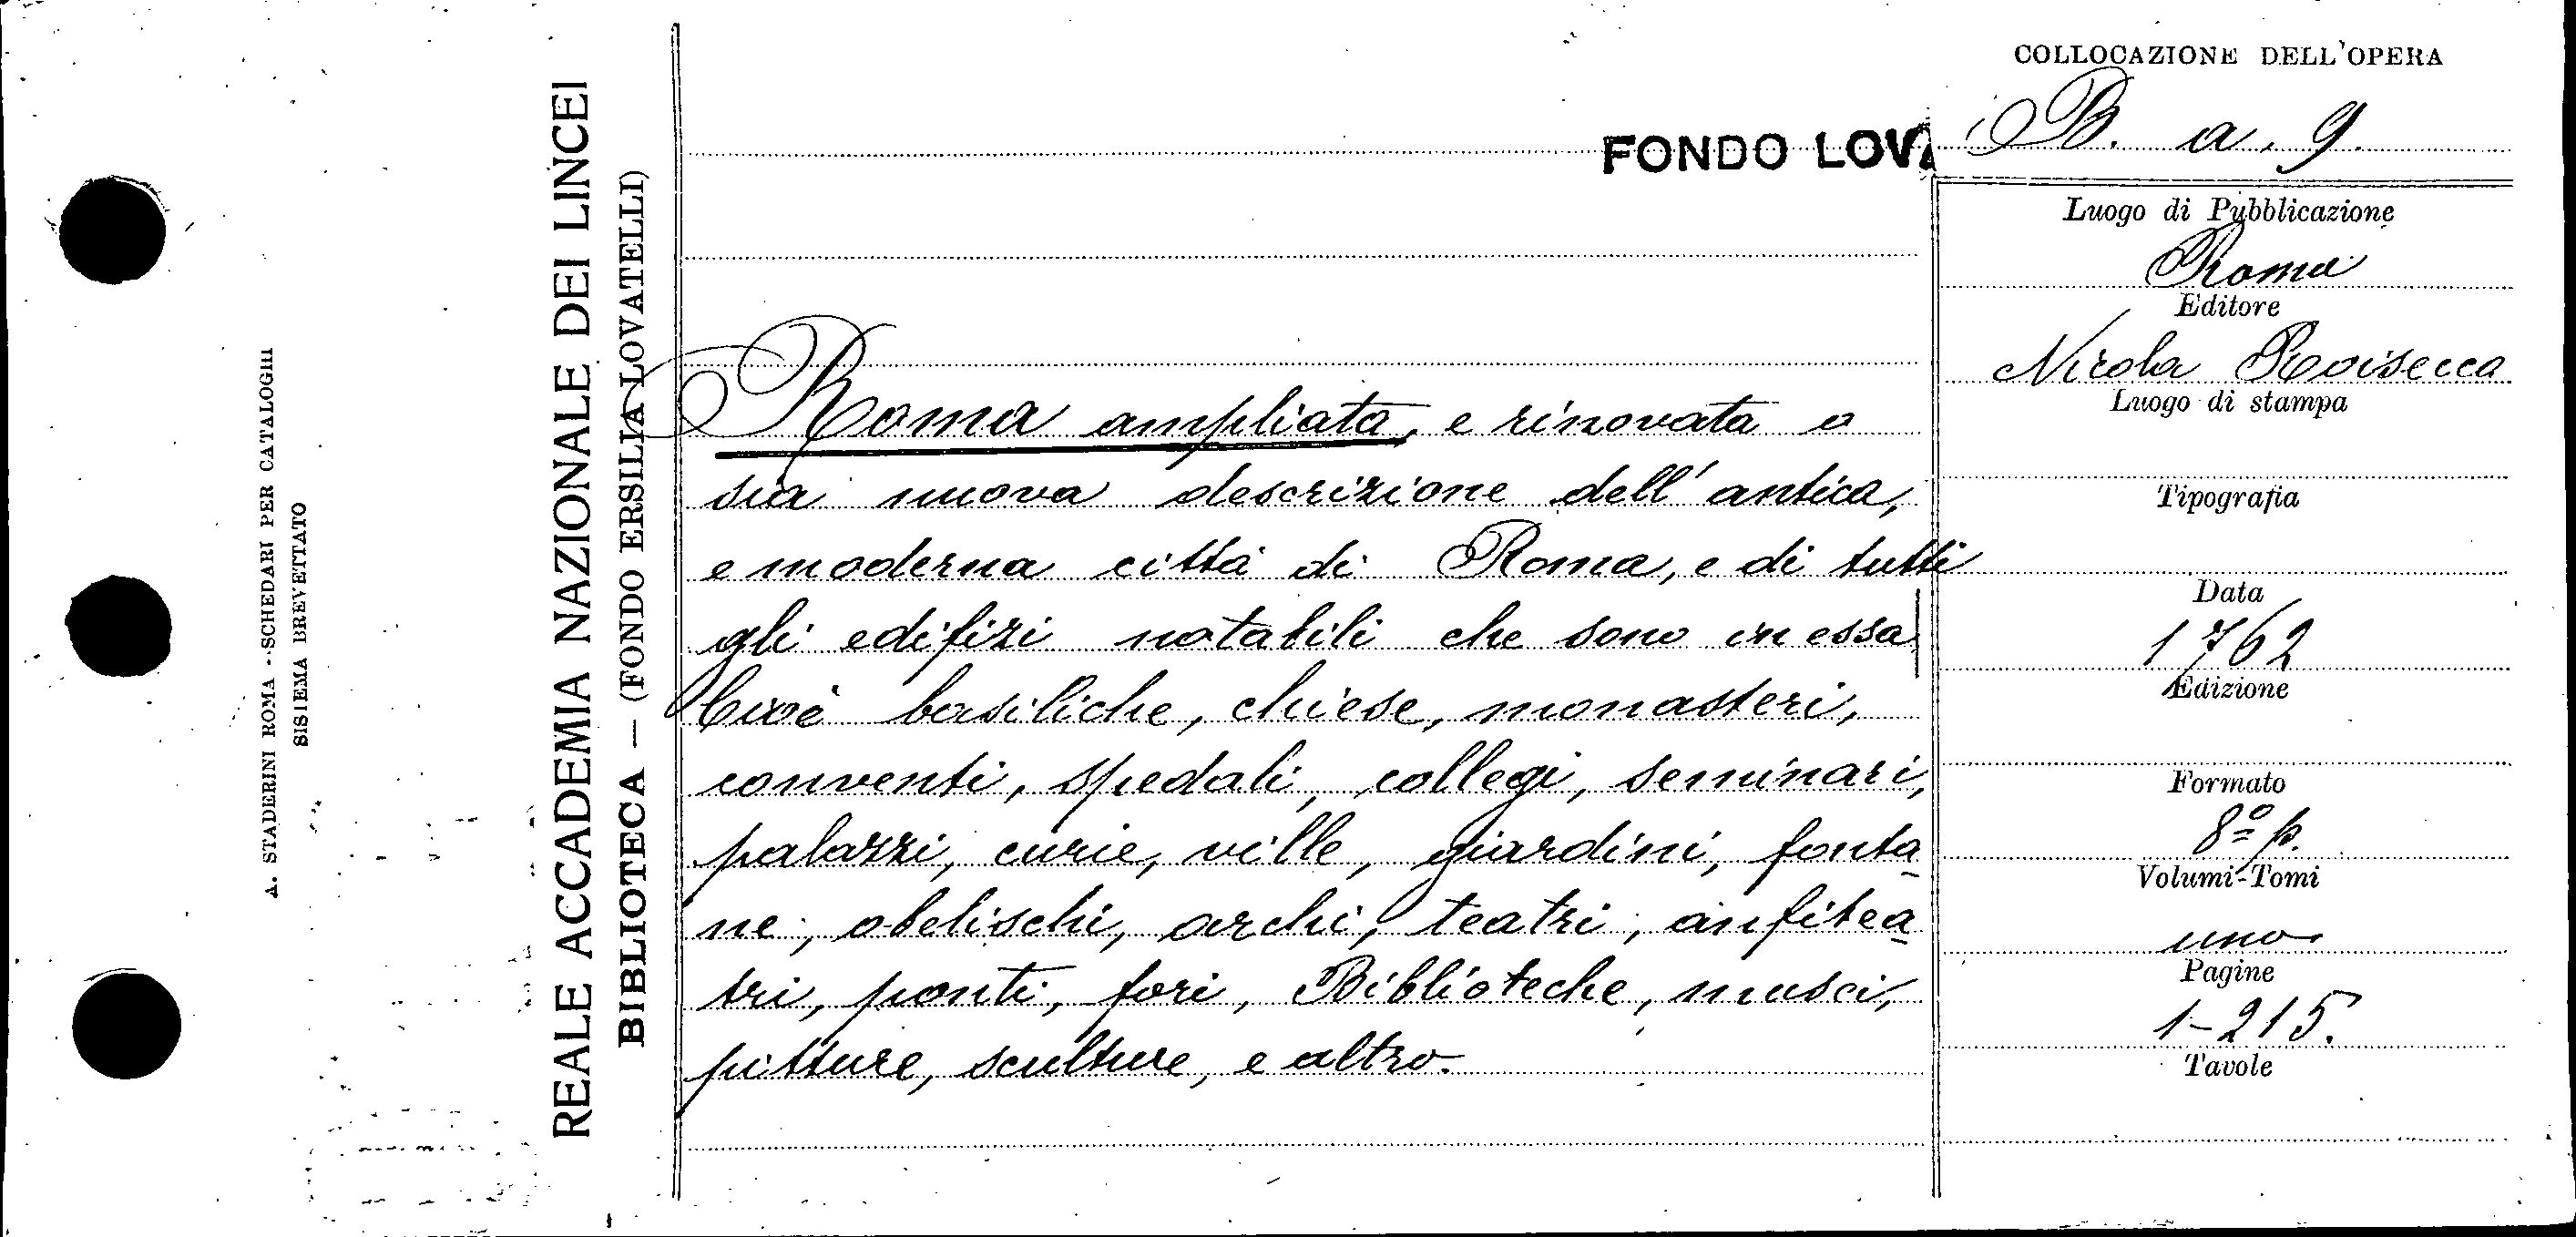 A. STADERINI ROMA - SCHEDARI PER CATALOGHI
SISTEMA BREVETTATO
REALE ACCADEMIA NAZIONALE DEI LINCEI
BIBLIOTECA — (FONDO ERSILIA LOVATELLI)
FONDO LOVA
Roma ampliata, e rinovata o
sia nuova descrizione dell'antica,
e moderna città di Roma, e di tutti
gli edifizi notabili che sono in essa
Cioè basiliche, chiese, monasteri,
conventi, spedali, collegi, seminari,
palazzi, curie, ville, giardini, fonta
ne, obelischi, archi, teatri, anfitea
tri, ponti, fori, Biblioteche, musei,
pitture, sculture, e altro.
COLLOCAZIONE DELL'OPERA
B. a. 9.
Luogo di Pubblicazione
Roma
Editore
Nicola Roisecca
Luogo di stampa
Tipografia
Data
1762
Edizione
Formato
8º p.
Volumi-Tomi
uno
Pagine
1-215.
Tavole